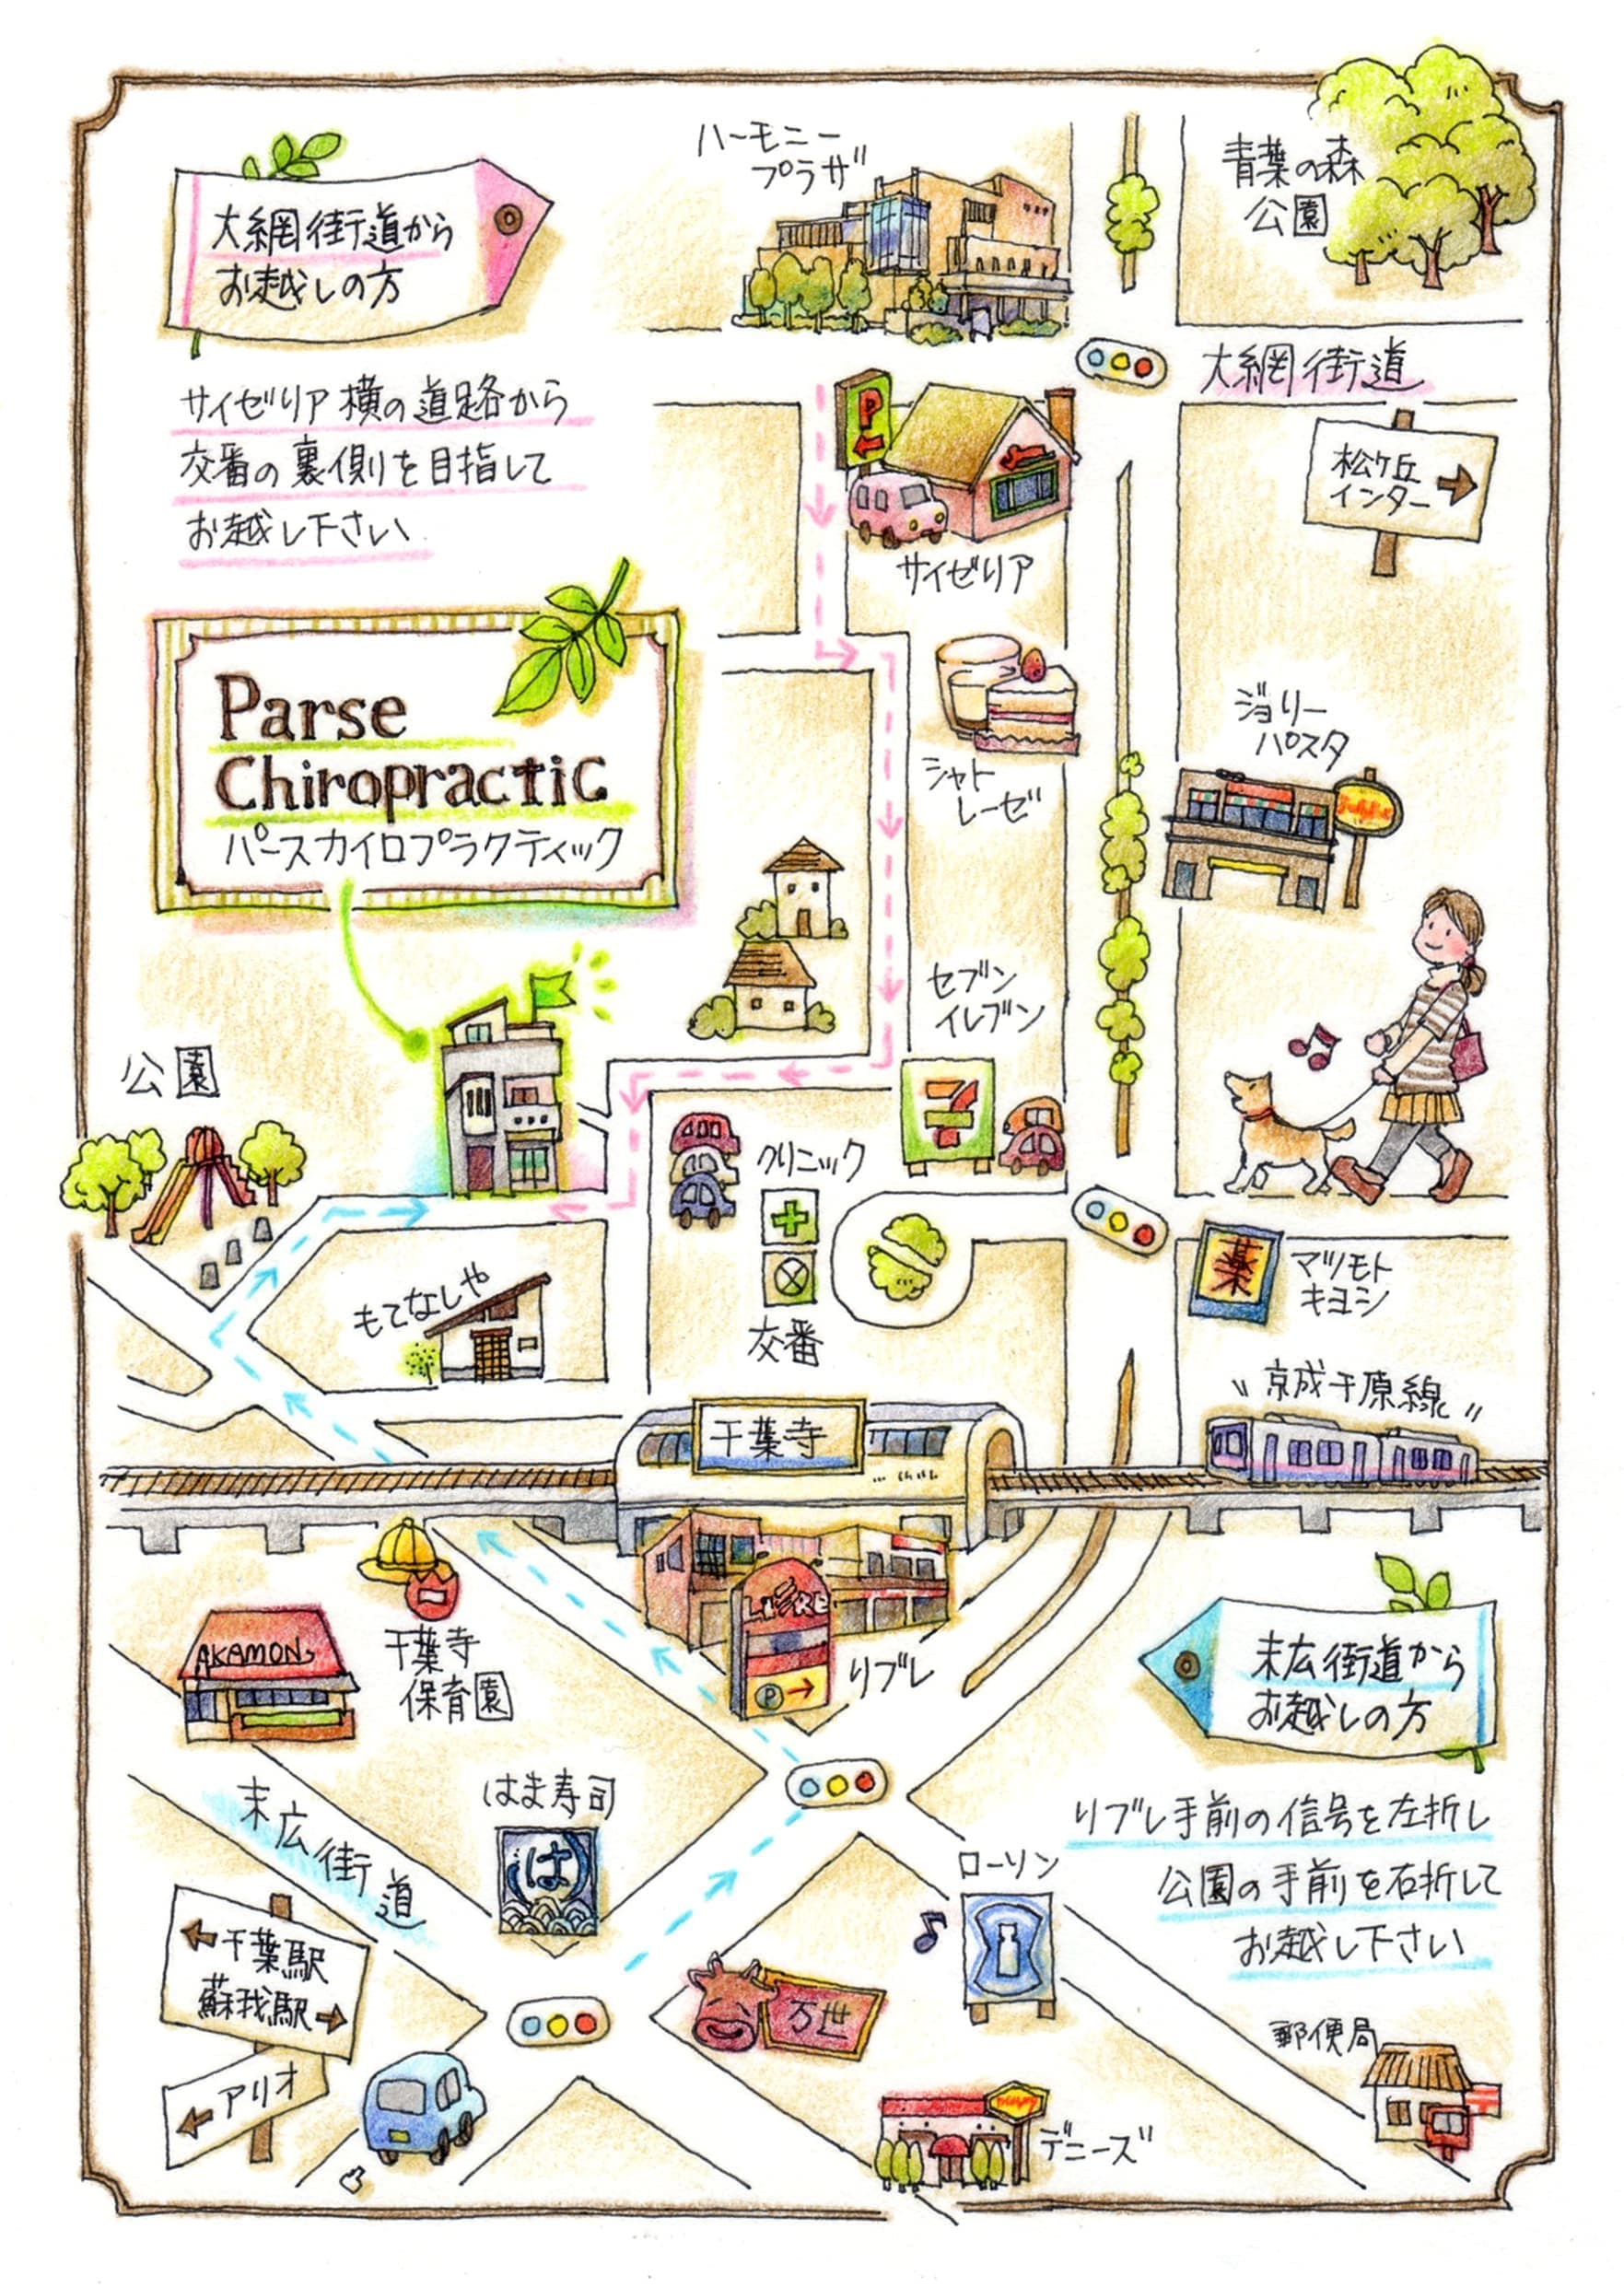 ハーモニー
プラザ
青葉の森
公園
大網街道から
お越しの方
大網街道
サイゼリア横の道路から
交番の裏側を目指して
お越し下さい
P
松ヶ丘
インター
サイゼリア
Parse
Chiropractic
パースカイロプラクティック
シャト
レーゼ
ジョリー
パスタ
セブン
イレブン
7
公園
クリニック
交番
もてなしや
薬
マツモト
キヨシ
京成千原線
千葉寺
AKAMON
千葉寺
保育園
LiVRE
P
リブレ
末広街道から
お越しの方
リブレ手前の信号を左折し
公園の手前を右折して
お越し下さい
末広街道
はま寿司
は
ローソン
千葉駅
蘇我駅
アリオ
万世
デニーズ
郵便局